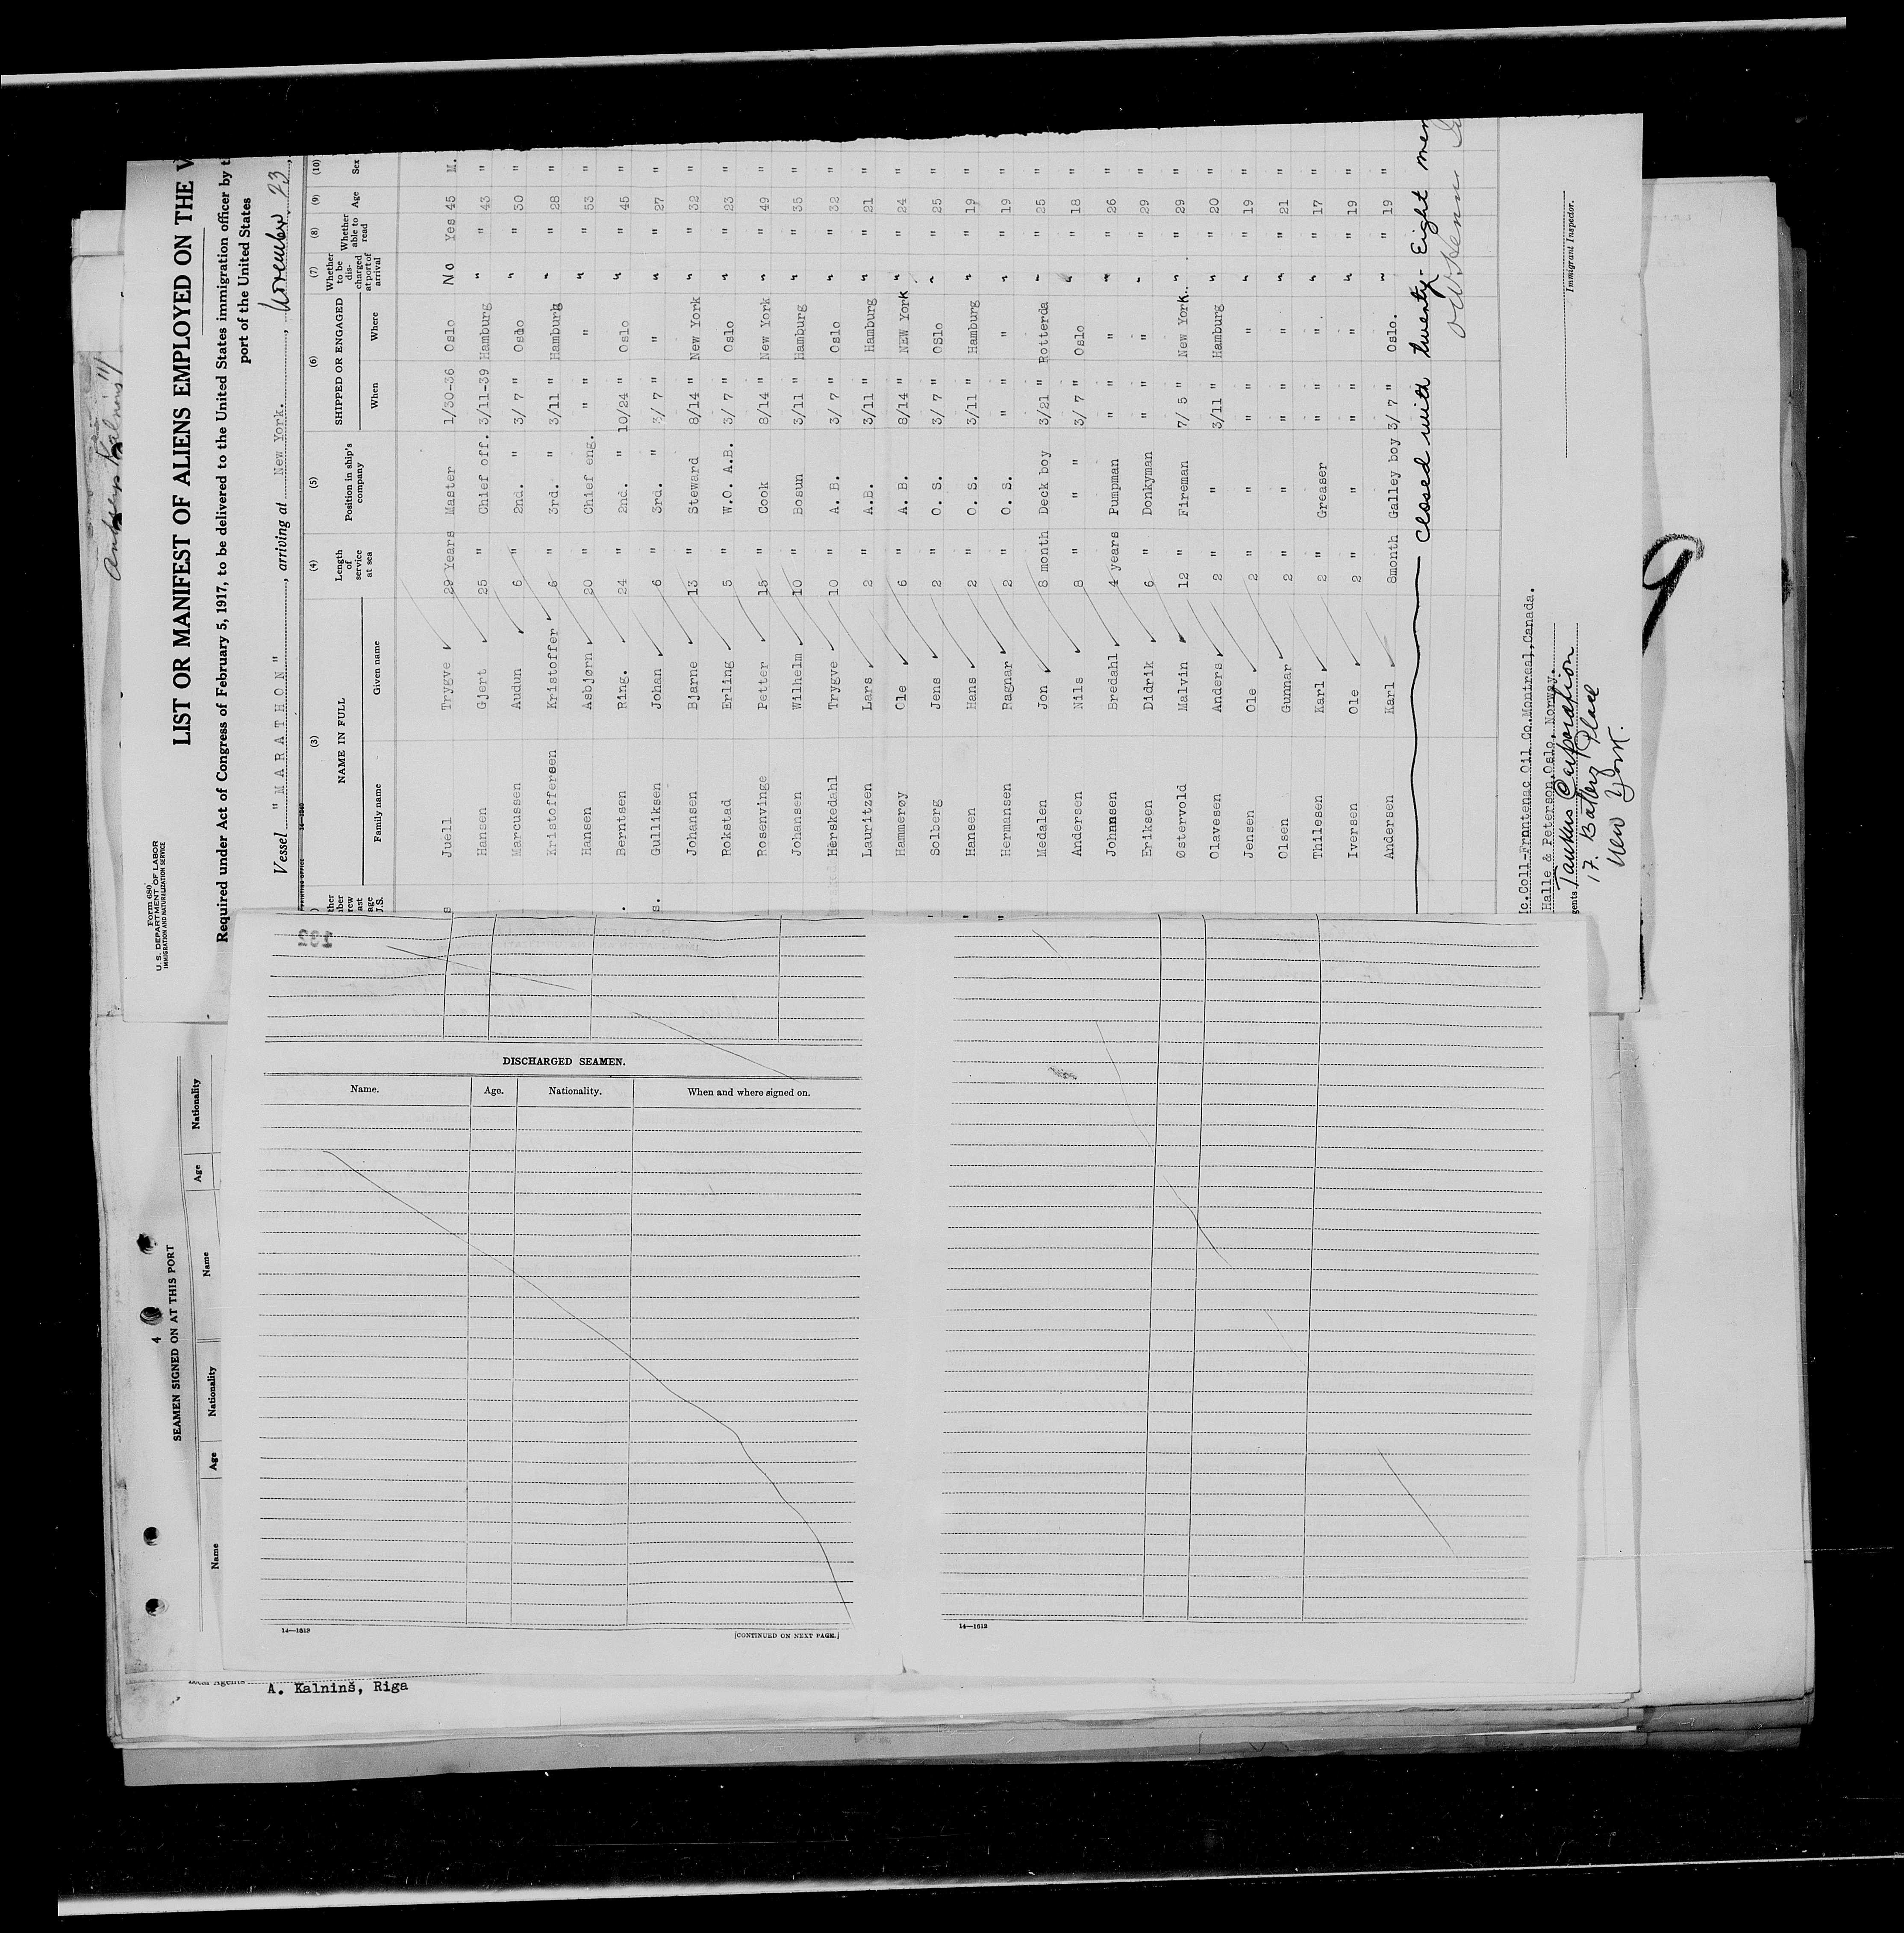 Form 680
U. S. DEPARTMENT OF LABOR
IMMIGRATION AND NATURALIZATION SERVICE
LIST OR MANIFEST OF ALIENS EMPLOYED ON THE V
Required under Act of Congress of February 5, 1917, to be delivered to the United States immigration officer by t
port of the United States
Vessel " M A R A T H O N ", arriving at New York. , November 23,
(3) (4) (5) (6) (7) (8) (9) (10)
NAME IN FULL Length of service at sea Position in ship's company SHIPPED OR ENGAGED Whether to be discharged at port of arrival Whether able to read Age Sex
Family name Given name When Where
Juell Trygve 29 Years Master 1/30-36 Oslo No Yes 45 M.
Hansen Gjert 25 " Chief off. 3/11-39 Hamburg " " 43 "
Marcussen Audun 6 " 2nd. " 3/ 7 " Oslo " " 30 "
Kristoffersen Kristoffer 6 " 3rd. " 3/11 " Hamburg " " 28 "
Hansen Asbjørn 20 " Chief eng. " " " " " 53 "
Berntsen Ring. 24 " 2nd. " 10/24 " Oslo " " 45 "
Gulliksen Johan 6 " 3rd. " 3/ 7 " " " " 27 "
Johansen Bjarne 13 " Steward 8/14 " New York " " 32 "
Rokstad Erling 5 " W.O. A.B. 3/ 7 " Oslo " " 23 "
Rosenvinge Petter 15 " Cook 8/14 " New York " " 49 "
Johansen Wilhelm 10 " Bosun 3/11 " Hamburg " " 35 "
Herskedahl Trygve 10 " A. B. 3/ 7 " Oslo " " 32 "
Lauritzen Lars 2 " A.B. 3/11 " Hamburg " " 21 "
Hammerøy Ole 6 " A. B. 8/14 " NEW York " " 24 "
Solberg Jens 2 " O. S. 3/ 7 " OSlo " " 25 "
Hansen Hans 2 " O. S. 3/11 " Hamburg " " 19 "
Hermansen Ragnar 2 " O. S. " " " " " 19 "
Medalen Jon 8 month Deck boy 3/21 " Rotterda " " 25 "
Andersen Nils 8 " " " 3/ 7 " Oslo " " 18 "
Johnnsen Bredahl 4 years Pumpman " " " " " 26 "
Eriksen Didrik 6 " Donkyman " " " " " 29 "
Østervold Malvin 12 " Fireman 7/ 5 " New York. " " 29 "
Olavesen Anders 2 " " 3/11 " Hamburg " " 20 "
Jensen Ole 2 " " " " " " " 19 "
Olsen Gunnar 2 " " " " " " " 21 "
Thilesen Karl 2 " Greaser " " " " " 17 "
Iversen Ole 2 " " " " " " " 19 "
Andersen Karl 8month Galley boy 3/ 7 " Oslo. " " 19 "
Closed with twenty-Eight mem
Mc.Coll-Frontenac Oil Co.Montreal,Canada.
Halle & Peterson,Oslo, Norway.
gents Tankers Corporation
17. Battery Place
New York.
Immigrant Inspector.
9
132
DISCHARGED SEAMEN.
Name. Age. Nationality. When and where signed on.
14—1613
[CONTINUED ON NEXT PAGE.]
14—1613
4
SEAMEN SIGNED ON AT THIS PORT
Name Age Nationality Name Age Nationality
Local Agents
A. Kalninš, Riga